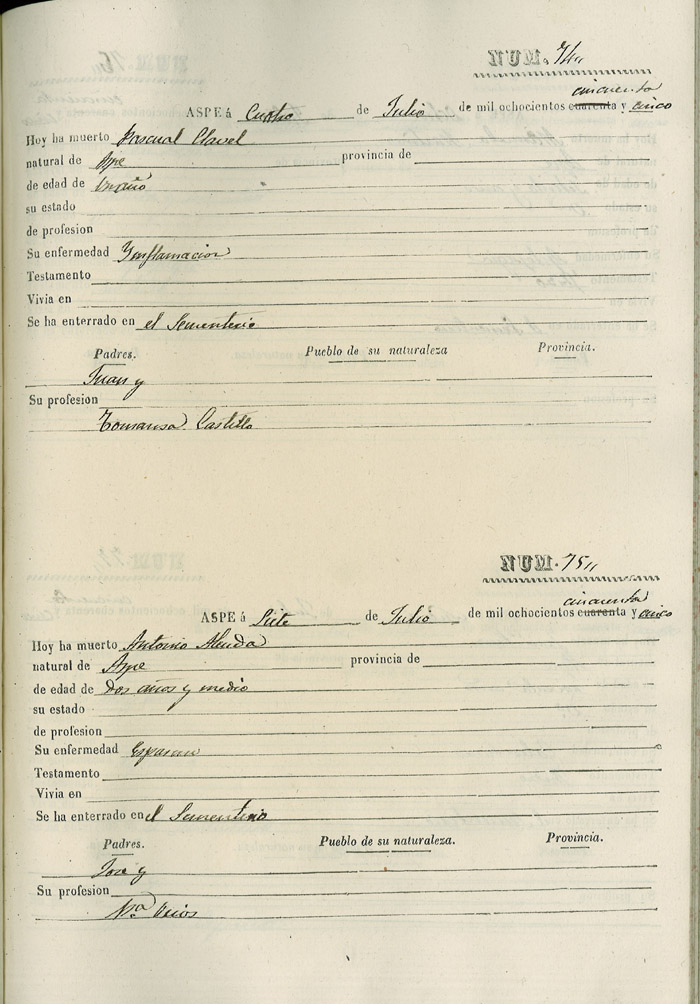 NUM. 74
cincuenta
ASPE á Cuatro de Julio de mil ochocientos cuarenta y cinco
Hoy ha muerto Pascual Clavel
natural de Aspe provincia de
de edad de un año
su estado
de profesion
Su enfermedad Ynflamacion
Testamento
Vivia en
Se ha enterrado en el Sementerio
Padres. Pueblo de su naturaleza Provincia.
Juan y
Su profesion
Tomassa Castillo
NUM. 75
cincuenta
ASPE á Siete de Julio de mil ochocientos cuarenta y cinco
Hoy ha muerto Antonio
natural de Aspe provincia de
de edad de dos años y medio
su estado
de profesion
Su enfermedad
Testamento
Vivia en
Se ha enterrado en el Sementerio
Padres. Pueblo de su naturaleza. Provincia.
Jose y
Su profesion
Mª